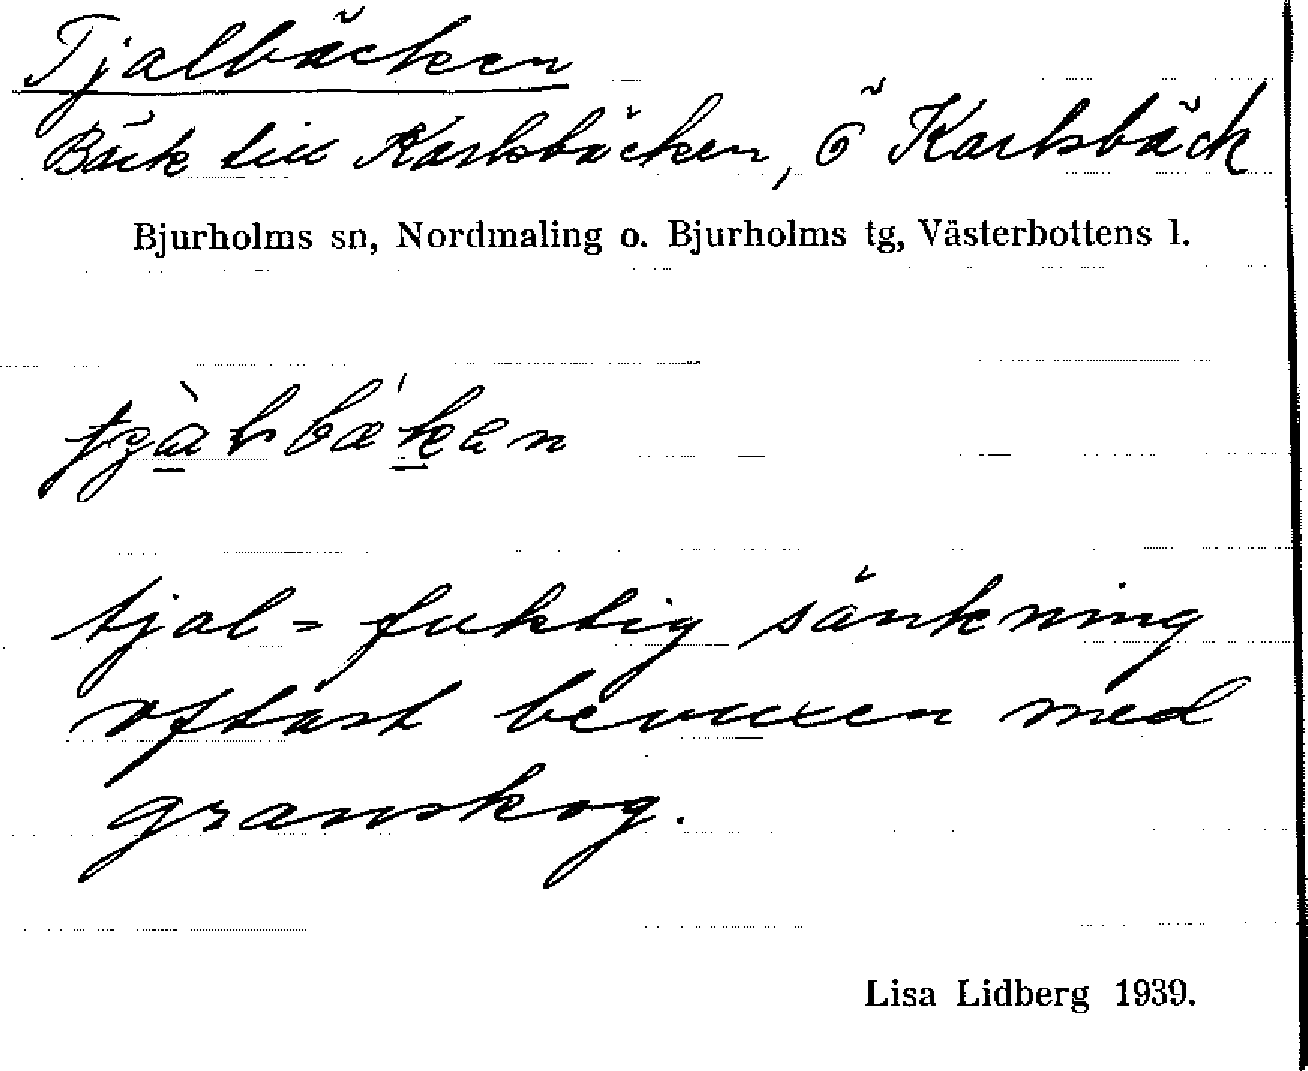 Tjalbäcken
Bäck till Karlsbäcken, ö Karlsbäck
Bjurholms sn, Nordmaling o. Bjurholms tg, Västerbottens l.
tjal = fuktig sänkning
oftast bevuxen med
granskog.
Lisa Lidberg 1939.